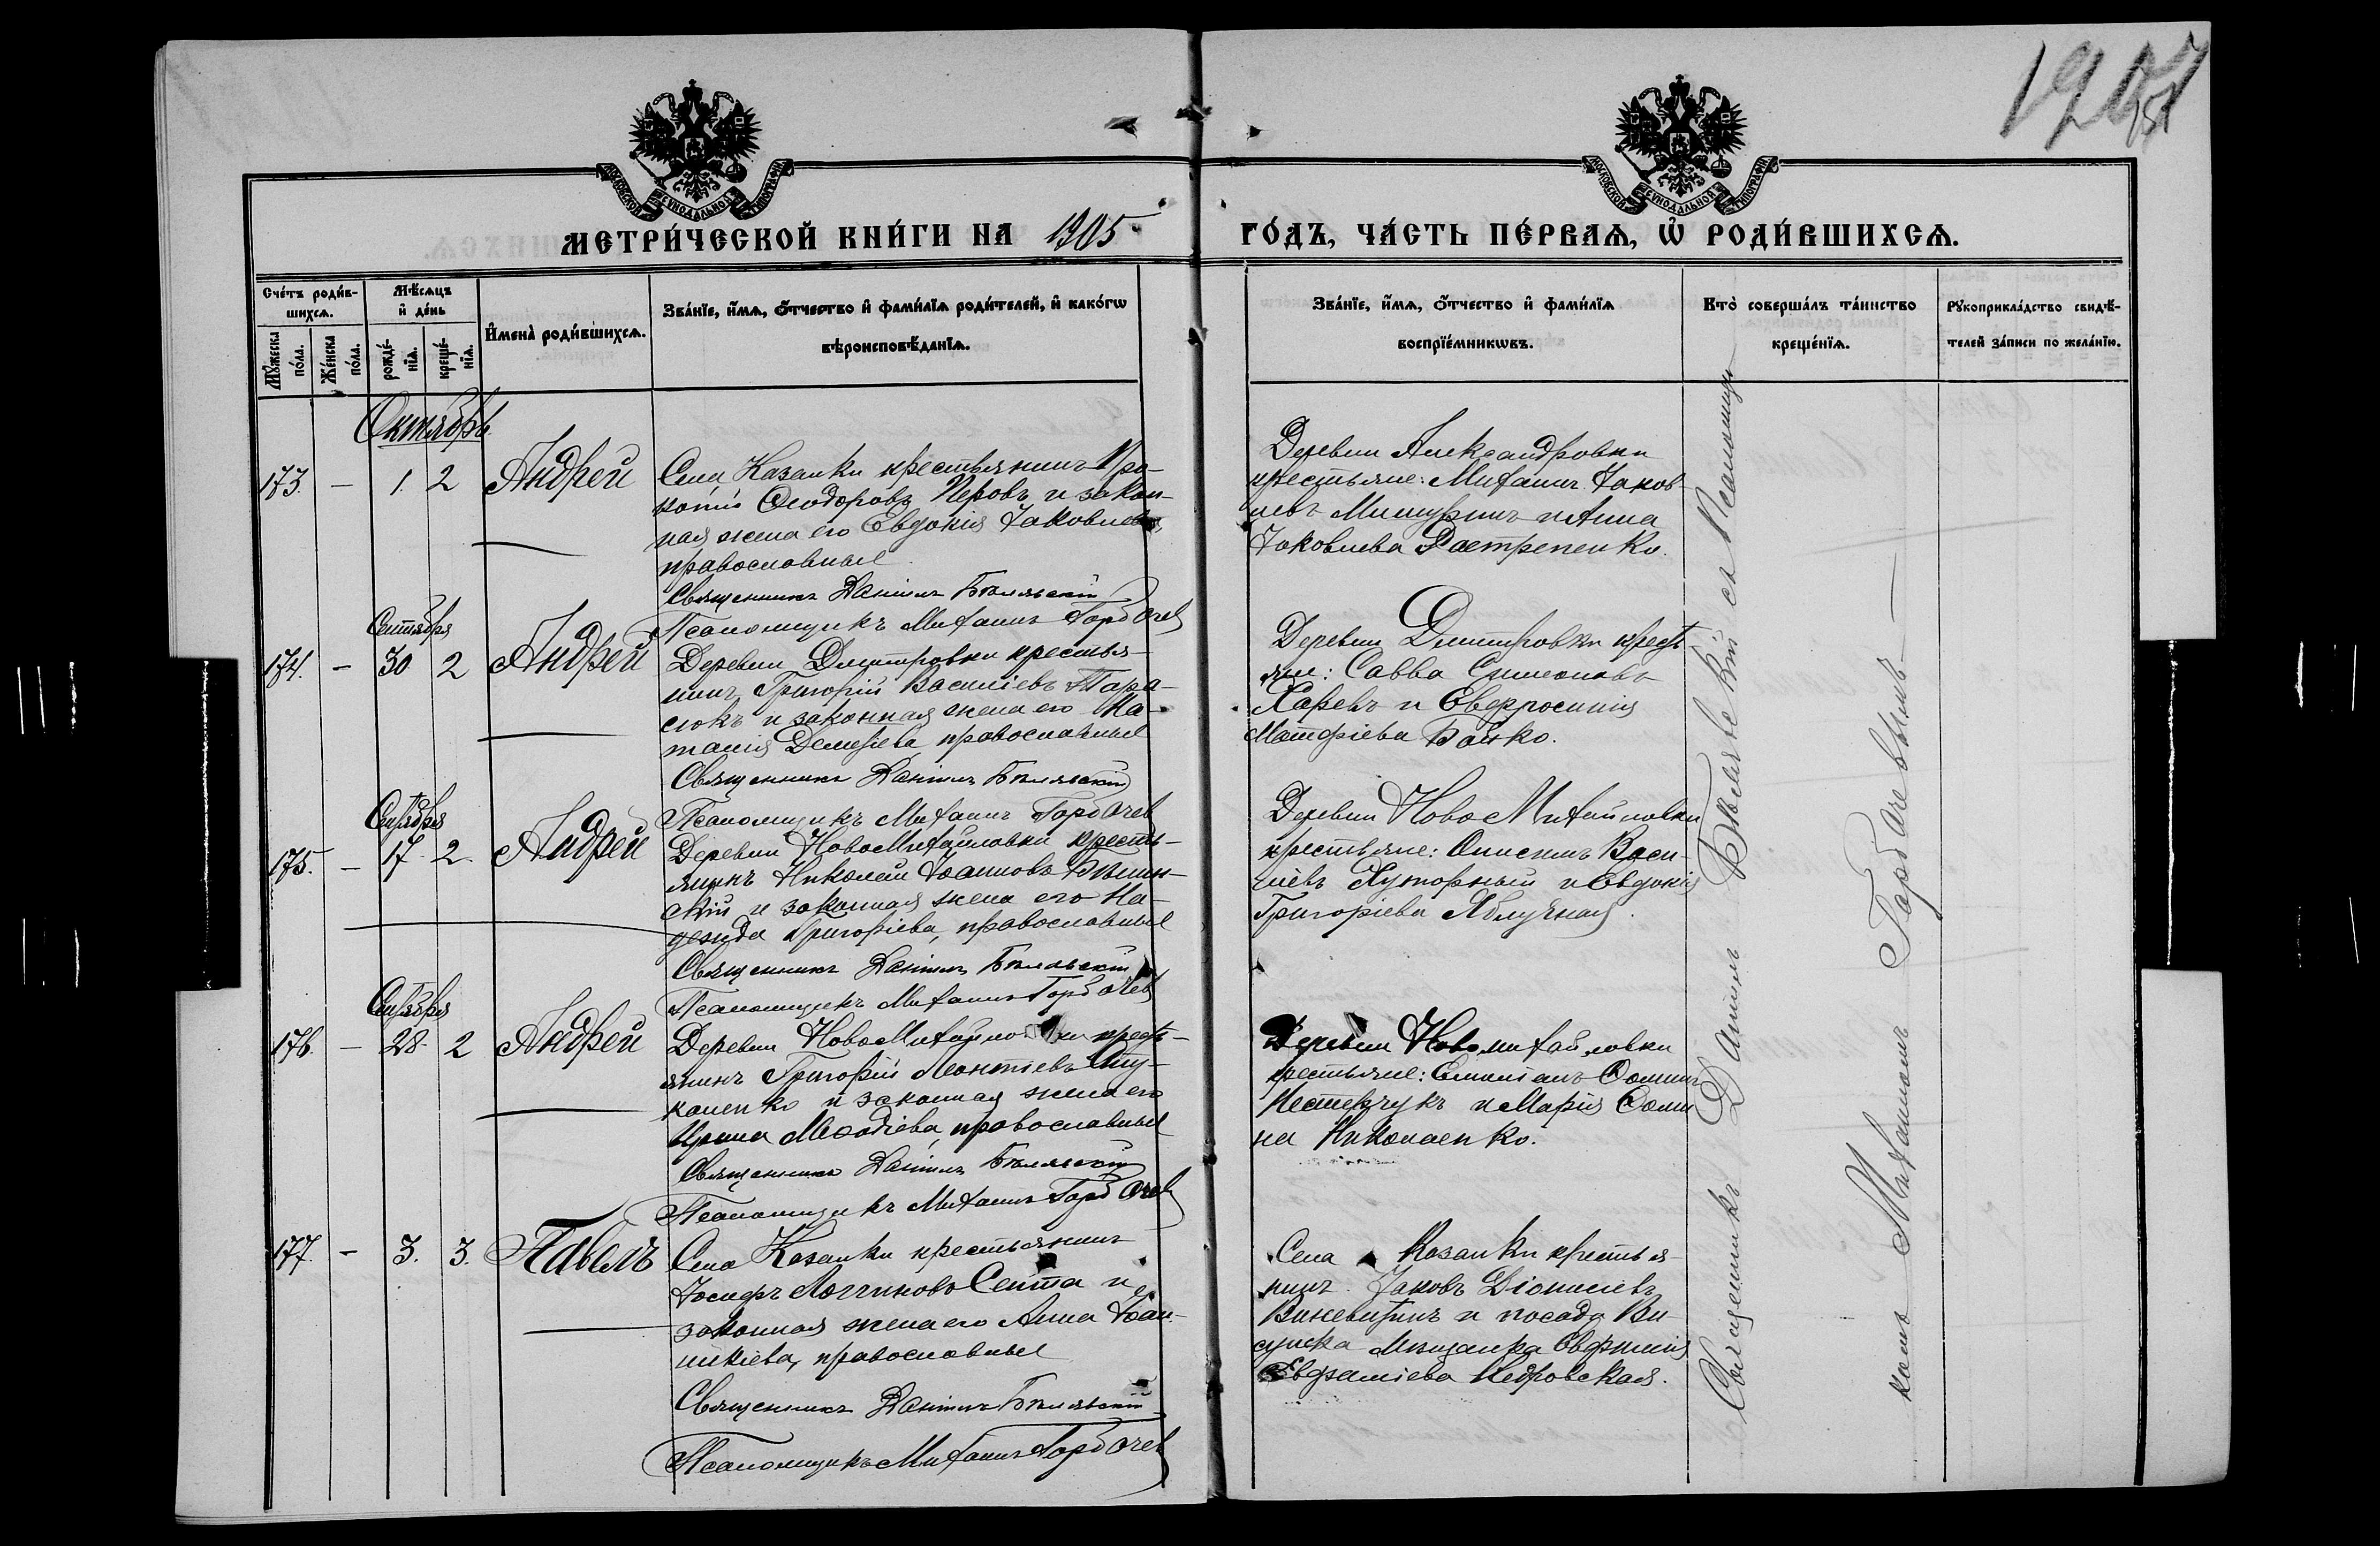 МЕТРИ́ЧЕСКОЙ КНИ́ГИ НА 1905
ГО́ДЪ, ЧА́СТЬ ПЕ́РВАѦ, Ѡ҆ РОДИ́ВШИХСѦ.
Сче́тъ роди́в-
шихсѧ.
Мꙋ́жеска
по́ла.
Же́нска
по́ла.
Мѣ́сѧцъ
и҆ де́нь
рожде́-
нїѧ.
креще́-
нїѧ.
И҆мена̀ роди́вшихсѧ.
Зва́нїе, и҆́мѧ, ѻ҆́тчество и҆ фами́лїѧ роди́телей, и҆ како́гѡ
вѣроисповѣ́данїѧ.
Зва́нїе, и҆́мѧ, ѻ҆́тчество и҆ фами́лїѧ
воспрїе́мникѡвъ.
Кто̀ соверша́лъ та́инство
креще́нїѧ.
Рꙋкоприкла́дство свидѣ́-
телей за́писи по жела́нїю.
Октябрь
173. — 1. 2 Андрей
Села Казанки крестьянинъ Про-
копій Ѳеодоровъ Перовъ и закон-
ная жена его Евдокія Іаковлева,
православные
Священникъ Даніилъ Бѣлявскій
Псаломщикъ Михаилъ Горбачев
Деревни Александровки
крестьяне: Михаилъ Іаков-
левъ Мишуринъ и Анна
Іаковлева Растрепенко.
Сентября
174. — 30 2 Андрей
Деревни Дмитровки крестья-
нинъ Григорій Василіевъ Тара-
сюкъ и законная жена его На-
талія Деметіева, православные
Священникъ Даніилъ Бѣлявскій
Псаломщикъ Михаилъ Горбачев
Деревни Димитровки крестъ
яне: Савва Симеоновъ
Харевъ и Евфросинія
Матѳіева Бойко.
Сентября
175. — 17 2. Андрей
Деревни НовоМихайловки кресть-
янинъ Николай Іоанновъ Вѣнин-
скій и законная жена его На-
дежда Григоріева, православные
Священникъ Даніилъ Бѣлявскій
Псаломщикъ Михаилъ Горбачев
Деревни НовоМихайловки
крестьяне: Онисимъ Васи-
ліевъ Хуторный и Евдокія
Григоріева Яблучная.
Сентября
176. — 28 2 Андрей
Деревни НовоМихайловки крестъ-
янинъ Григорій Леонтіевъ Сту-
каленко и законная жена его
Ирина Меѳодіева, православные
Священникъ Даніилъ Бѣлявскій
Псаломщикъ Михаилъ Горбачев
Деревни Новомихайловки
крестьяне: Емиліанъ Ѳоминъ
Нестерчукъ и Марія Ѳоми
на Николаенко.
177 — 3. 3. Павелъ
Села Казанки крестьянинъ
Іосифъ Логгиновъ Сента и
законная жена его Анна Іоан-
никіева, православные
Священникъ Даніилъ Бѣлявскій
Псаломщикъ Михаилъ Горбачев
Села Казанки крестья-
нинъ Іаковъ Діонисіевъ
и посада Ви-
сунска мѣщанка Евфимія
Евфиміева Недровская.
Священникъ Даніилъ Бѣлявскій съ Псаломщи-
комъ Михаиломъ Горбачевымъ —